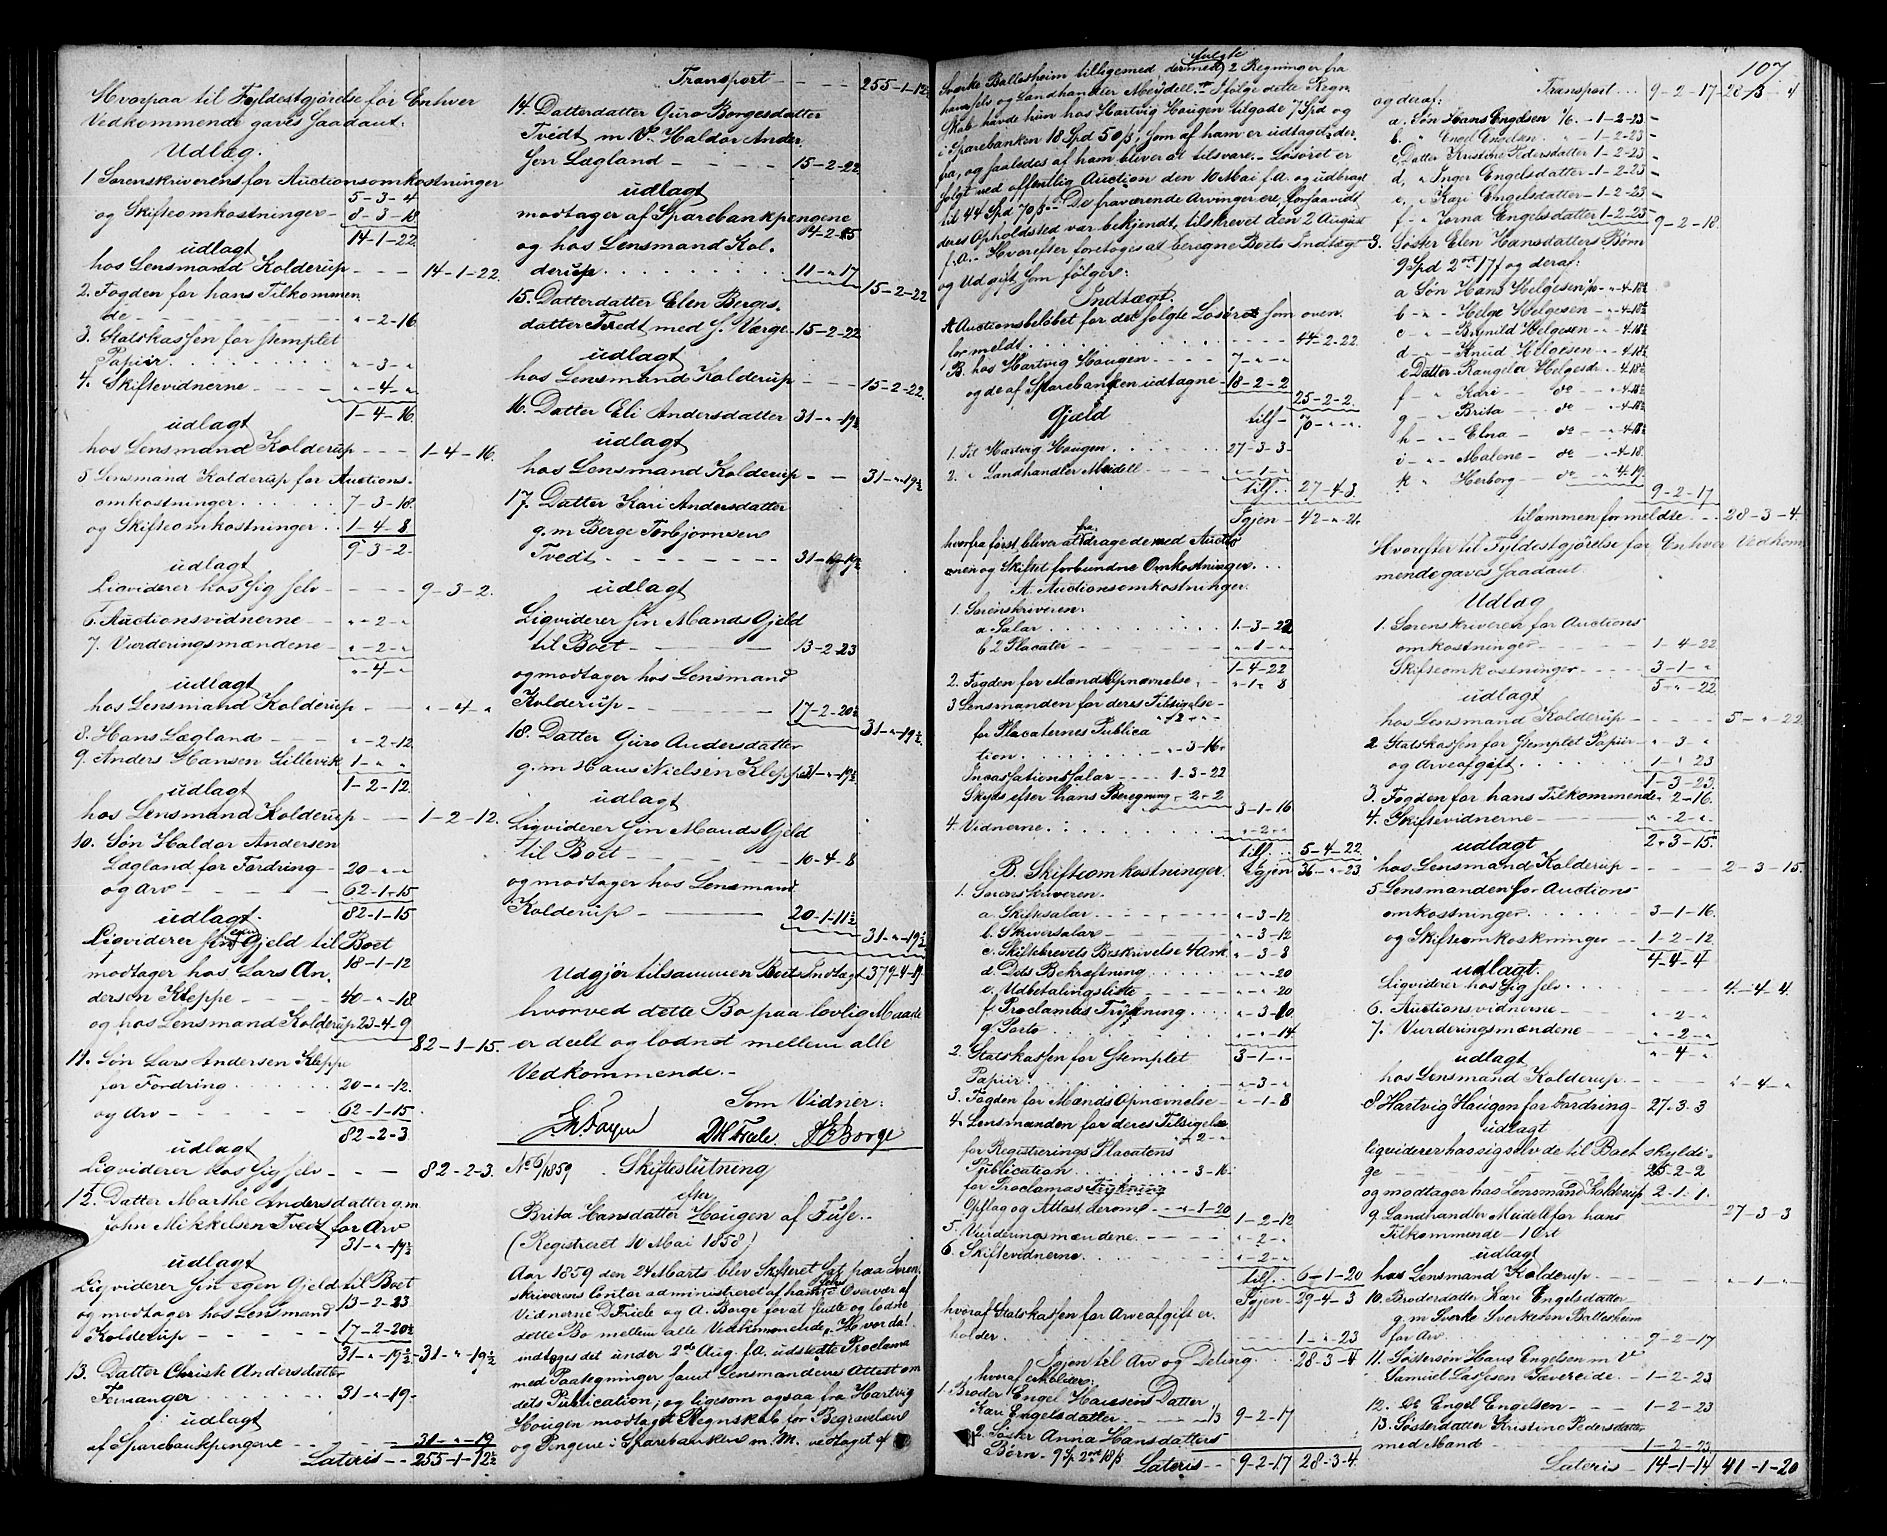 Hvorpaa til Fyldestgjørelse for Enhver
Vedkommende gaves saadant:
Udlæg.
1 Sorenskriverens for Auctionsomkostninger
5-3-4
og Skifteomkostninger - 8-3-18
14-1-22
udlagt
hos Lensmand Kolderup - - - 14-1-22.
2. Fogden for hans Tilkommen
de - - - "-2-16
3. Statskassen for stemplet
Papiir . . . . "-3-"
4. Skiftevidnerne - - - "-4-"
1-4-16.
udlagt
hos Lensmand Kolderup - - - 1-4-16.
5 Lensmand Kolderup for Auctions-
omkostninger . . . . 7-3-18.
og Skifteomkostninger . . 1-4-8
9-3-2.
udlagt
Liqviderer hos sig selv - - - - 9-3-2.
6. Auctionsvidnerne - - "-2-"
7. Vurderingsmændene - "-2-"
"-4-"
udlagt
hos Lensmand Kolderup - - - "-4-"
8. Hans Lægland - - - "-2-12.
9. Anders Hansen Lillevik 1-"-"
1-2-12.
udlagt
hos Lensmand Kolderup - - - 1-2-12.
10. Søn Haldor Andersen
Lægland for Fordring - 20-"-"
og Arv - - - 62-1-15
82-1-15
udlagt.
Liqviderer sin egen Gjeld til Boet
18-1-12
modtager hos Lars An,
dersen Kleppe - - - 40-"-18.
og hos Lensmand Kolderup 23-4-9
82-1-15.
11. Søn Lars Andersen Kleppe
for Fordring . . . . 20-"-12.
og Arv - - - - 62-1-15
82-2-3.
udlagt
Liqviderer hos sig selv - - - 82-2-3.
12. Datter Marthe Andersdatter g.m
John Mikkelsen Tvedt for Arv
31-"-19½
udlagt
Liqviderer sin egen Gjeld til Boet
13-2-23
og modtager hos Lensmand
Kolderup - - - - 17-2-20½
31-"-19½ - 31-"-19½
13. Datter Christi Andersdatter
Femanger . . . . 31-"-19.
udlagt
af Sparebankpengene - - 31-"-19
Lateris - - 255-1-12½
Transport - - - 255-1-12½
14. Datterdatter Guro Borgesdatter
Tvedt m V. Haldor Ander
sen Lægland - - - 15-2-22
udlagt
modtager af Sparebankpengene
14-2-15
og hos Lensmand Kol.
derup . . . . 11-"-17
15-2-22
15. Datterdatter Elen Borges.
datter Tvedt med s. Værge 15-2-22
udlagt
hos Lensmand Kolderup - - - 15-2-22.
16. Datter Eli Andersdatter 31-"-19½
udlagt
hos Lensmand Kolderup - - 31-"-19½
17. Datter Kari Andersdatter
g.m Berge Torbjørnsen
Tvedt. - - - - 31-"-19½
udlagt
Liqviderer sin Mands Gjeld
til Boet - - - - 13-2-23
og modtager hos Lensmand
Kolderup - - - 17-2-20½
31-"-19½
18. Datter Guro Andersdatter
g.m Hans Nielsen Kleppe 31-"-19½
udlagt
Liqviderer sin Mands Gjeld
til Boet - - - - 10-4-8
og modtager hos Lensmand
Kolderup - - - 20-1-11½
31-"-19½
Udgjør tilsammen Boets Indtægt 379-4-19
hvorved dette Bo paa lovlig Maade
er deelt og lodnet mellem alle
Vedkommende. -
Som Vidner:
DM Friele A Borge
No 6/1859 . Skifteslutning
efter
Brita Hansdatter Hougen af Fuse. .
(Registreret 10 Mai 1858)
Aar 1859 den 24 Marts blev Skifteret sat paa Soren
skriverens Contor administreret af ham selv i Overvær af
Vidnerne D Friele og A. Borge for at slutte og lodne
dette Bo mellem alle Vedkommende. Hvor da!
indtoges det under 2de Aug. f.A. udstedte Proclama
med Paategninger samt Lensmandens Attest om
dets Publication, og ligesom ogsaa fra Hartvig
Hougen modtaget Regnskab for Begravelsen
og Pengene i Sparebanken m. M. vedtaget af
107
Sverke Ballesheim tilligemed dermed fulgte 2 Regninger fra
ham selv og Landhandler Meydell. I følge dette Regn
skab havde hun hos Hartvig Hougen tilgode 7 Spd og
i Sparebanken 18 Spd 50 ß, som af ham er udtaget der,
fra, og saaledes af ham bliver at tilsvare. - Løsøret er
solgt ved offentlig Auction den 10 Mai f.A. og udbragt
til 44 Spd 70 ß. - De fraværende Arvinger ere, forsaavidt
deres Opholdsted var bekjendt, tilskrevet den 2 August
f.A. - Hvorefter foretoges at beregne Boets Indtægt
og Udgift som følger:
Indtægt.
A Auctionsbeløbet for det solgte Løsøre som oven.
formeldt . . . . 44-2-22.
B. hos Hartvig Hougen - - - 7-"-"
og de af Sparebanken udtagne - 18-2-2
25-2-2.
tils - 70-"-"
Gjeld
1. Til Hartvig Hougen . . . . 27-3-3
2. " Landhandler Meidell - - - "-1-"
tils . . 27-4-3.
Igjen - 42-"-21.
hvorfra først bliver at fradrage de med Auctio
nen og Skiftet forbundne Omkostninger. . .
A. Auctionsomkostninger.
1. Sorenskriveren:
a Salar . . . . 1-3-22
b 2 Placater - - - "-1-"
1-4-22
2. Fogden for Mænds Opnævnelse - "-1-8
3 Lensmanden for deres Tilsigelse -
"-12-"
for Placaternes Publica
tion . . . . "-3-16
Incassationssalar - - - 1-3-22
Skyds efter hans Beregning "-2-2
3-1-16
4. Vidnerne . . . . "-2-"
tils . . 5-4-22
Igjen 36-"-23
B. Skifteomkostninger.
1. Sorenskriveren.
a. Skiftesalar . . . . "-3-12
b. Skriversalar - - - "-3-12
c. Skiftebrevets Beskrivelse 4 Ark "-3-8
d Dets Bekræftning . . . . "-"-20
e. Udbetalingsliste - - - "-"-20
f. Proclamas Trykning . . . "-3-10
g. Porto . . . . "-"-14
3-1-"
2. Statskassen for Stemplet
Papiir . . . . "-3-"
3. Fogden for Mænds Opnævnelse - "-1-8
4. Lensmanden for deres Tilsigelse
"-2-"
for Registrerings Placatens
Publication . . . "-3-16
for Proclamas
Opslag og Attest derom - - "-1-20
1-2-12
5. Vurderingsmændene - - - "-2-"
6. Skiftevidnerne . . . . "-2-"
tils . . 6-1-20
Igjen - 29-4-3
hvoraf Statskassen for Arveafgift er,
holder . . . . 1-"-23
Igjen til Arv og Deling . . . 28-3-4
hvoraf erholder:
1. Broder Engel Hanssens Datter
Kari Engelsdatter - - - 1/3 9-2-17
2. Søster Anna Hansdatters
Børn - 9 Sp 2 ort 18 ß
Lateris - - 9-2-17 28-3-4.
Transport . . . 9-2-17 28-3-4
og deraf:
a, Søn Hans Engelsen 1/6. - 1-2-23 -
b. " Engel Engelsen. " - 1-2-23 -
c Datter Kristine Pedersdatter 1-2-23 -
d, " Inger Engelsdatter - 1-2-23 -
e, " Kari Engelsdatter - 1-2-23 -
f - " Jorna Engelsdatter 1-2-23 -
9-2-18.
3. Søster Elen Hansdatters Børn
9 Spd 2 ort 17 ß og deraf:
a Søn Hans Helgesen 1/10 - "-4-18½
b - " Helge Helgesen - "-4-18½
c - " Brynild Helgesen - "-4-18½
d - " Knud Helgesen - "-4-18½
e Datter Rangela Helgesdr "-4-18½
f - " Kari - - do - "-4-18½
g - " Brita . . do - "-4-18½
h - " Elna - do - "-4-18½
i - " Malene - do - "-4-18.
k - " Herborg - do - "-4-19.
9-2-17
tilsammen formeldte . . . 28-3-4.
Hvorefter til Fyldestgjørelse for Enhver Vedkom,
mende gaves saadant.
Udlæg
1. Sorenskriveren for Auctions
omkostninger - - - 1-4-22.
Skifteomkostninger - - - 3-1-"
5-"-22
udlagt
hos Lensmand Kolderup - - - - 5-"-22
2 Statskassen for Stemplet Papiir - "-3-"
og Arveafgift . . . . 1-"-23
1-3-23.
3. Fogden for hans Tilkommende "-2-16.
4. Skiftevidnerne - - - "-2-"
2-3-15.
udlagt
hos Lensmand Kolderup - - - 2-3-15.
5 Lensmanden for Auctions
omkostninger . . . . 3-1-16.
og Skifteomkostninger - - 1-2-12.
4-4-4
udlagt.
Liqviderer hos sig selv . . . . 4-4-4.
6. Auctionsvidnerne - - - "-2-"
7. Vurderingsmændene - - - "-2-"
"-4-"
udlagt
hos Lensmand Kolderup - - - "-4-"
8 Hartvig Haugen for Fordring - 27-3-3
udlagt
liqviderer hos sig selv de til Boet skyldi-
ge - - - 25-2-2
og modtager hos Lensmand Kolderup 2-1-1.
27-3-3
9. Landhandler Meidell for hans
Tilkommende - 1 Ort
udlagt
hos Lensmand Kolderup . . . - "-1-"
10. Broderdatter Kari Engelsdatter
g.m Sverke Sverkesen Ballesheim
for Arv . . . . 9-2-17
11. Søstersøn Hans Engelsen m V
Samuel Lassesen Sævereide . - 1-2-23
12. Do Engel Engelsen - - - 1-2-23
13. Søsterdatter Kristine Pedersdatter
med Mand - - - 1-2-23
Lateris - 14-1-14 41-1-20